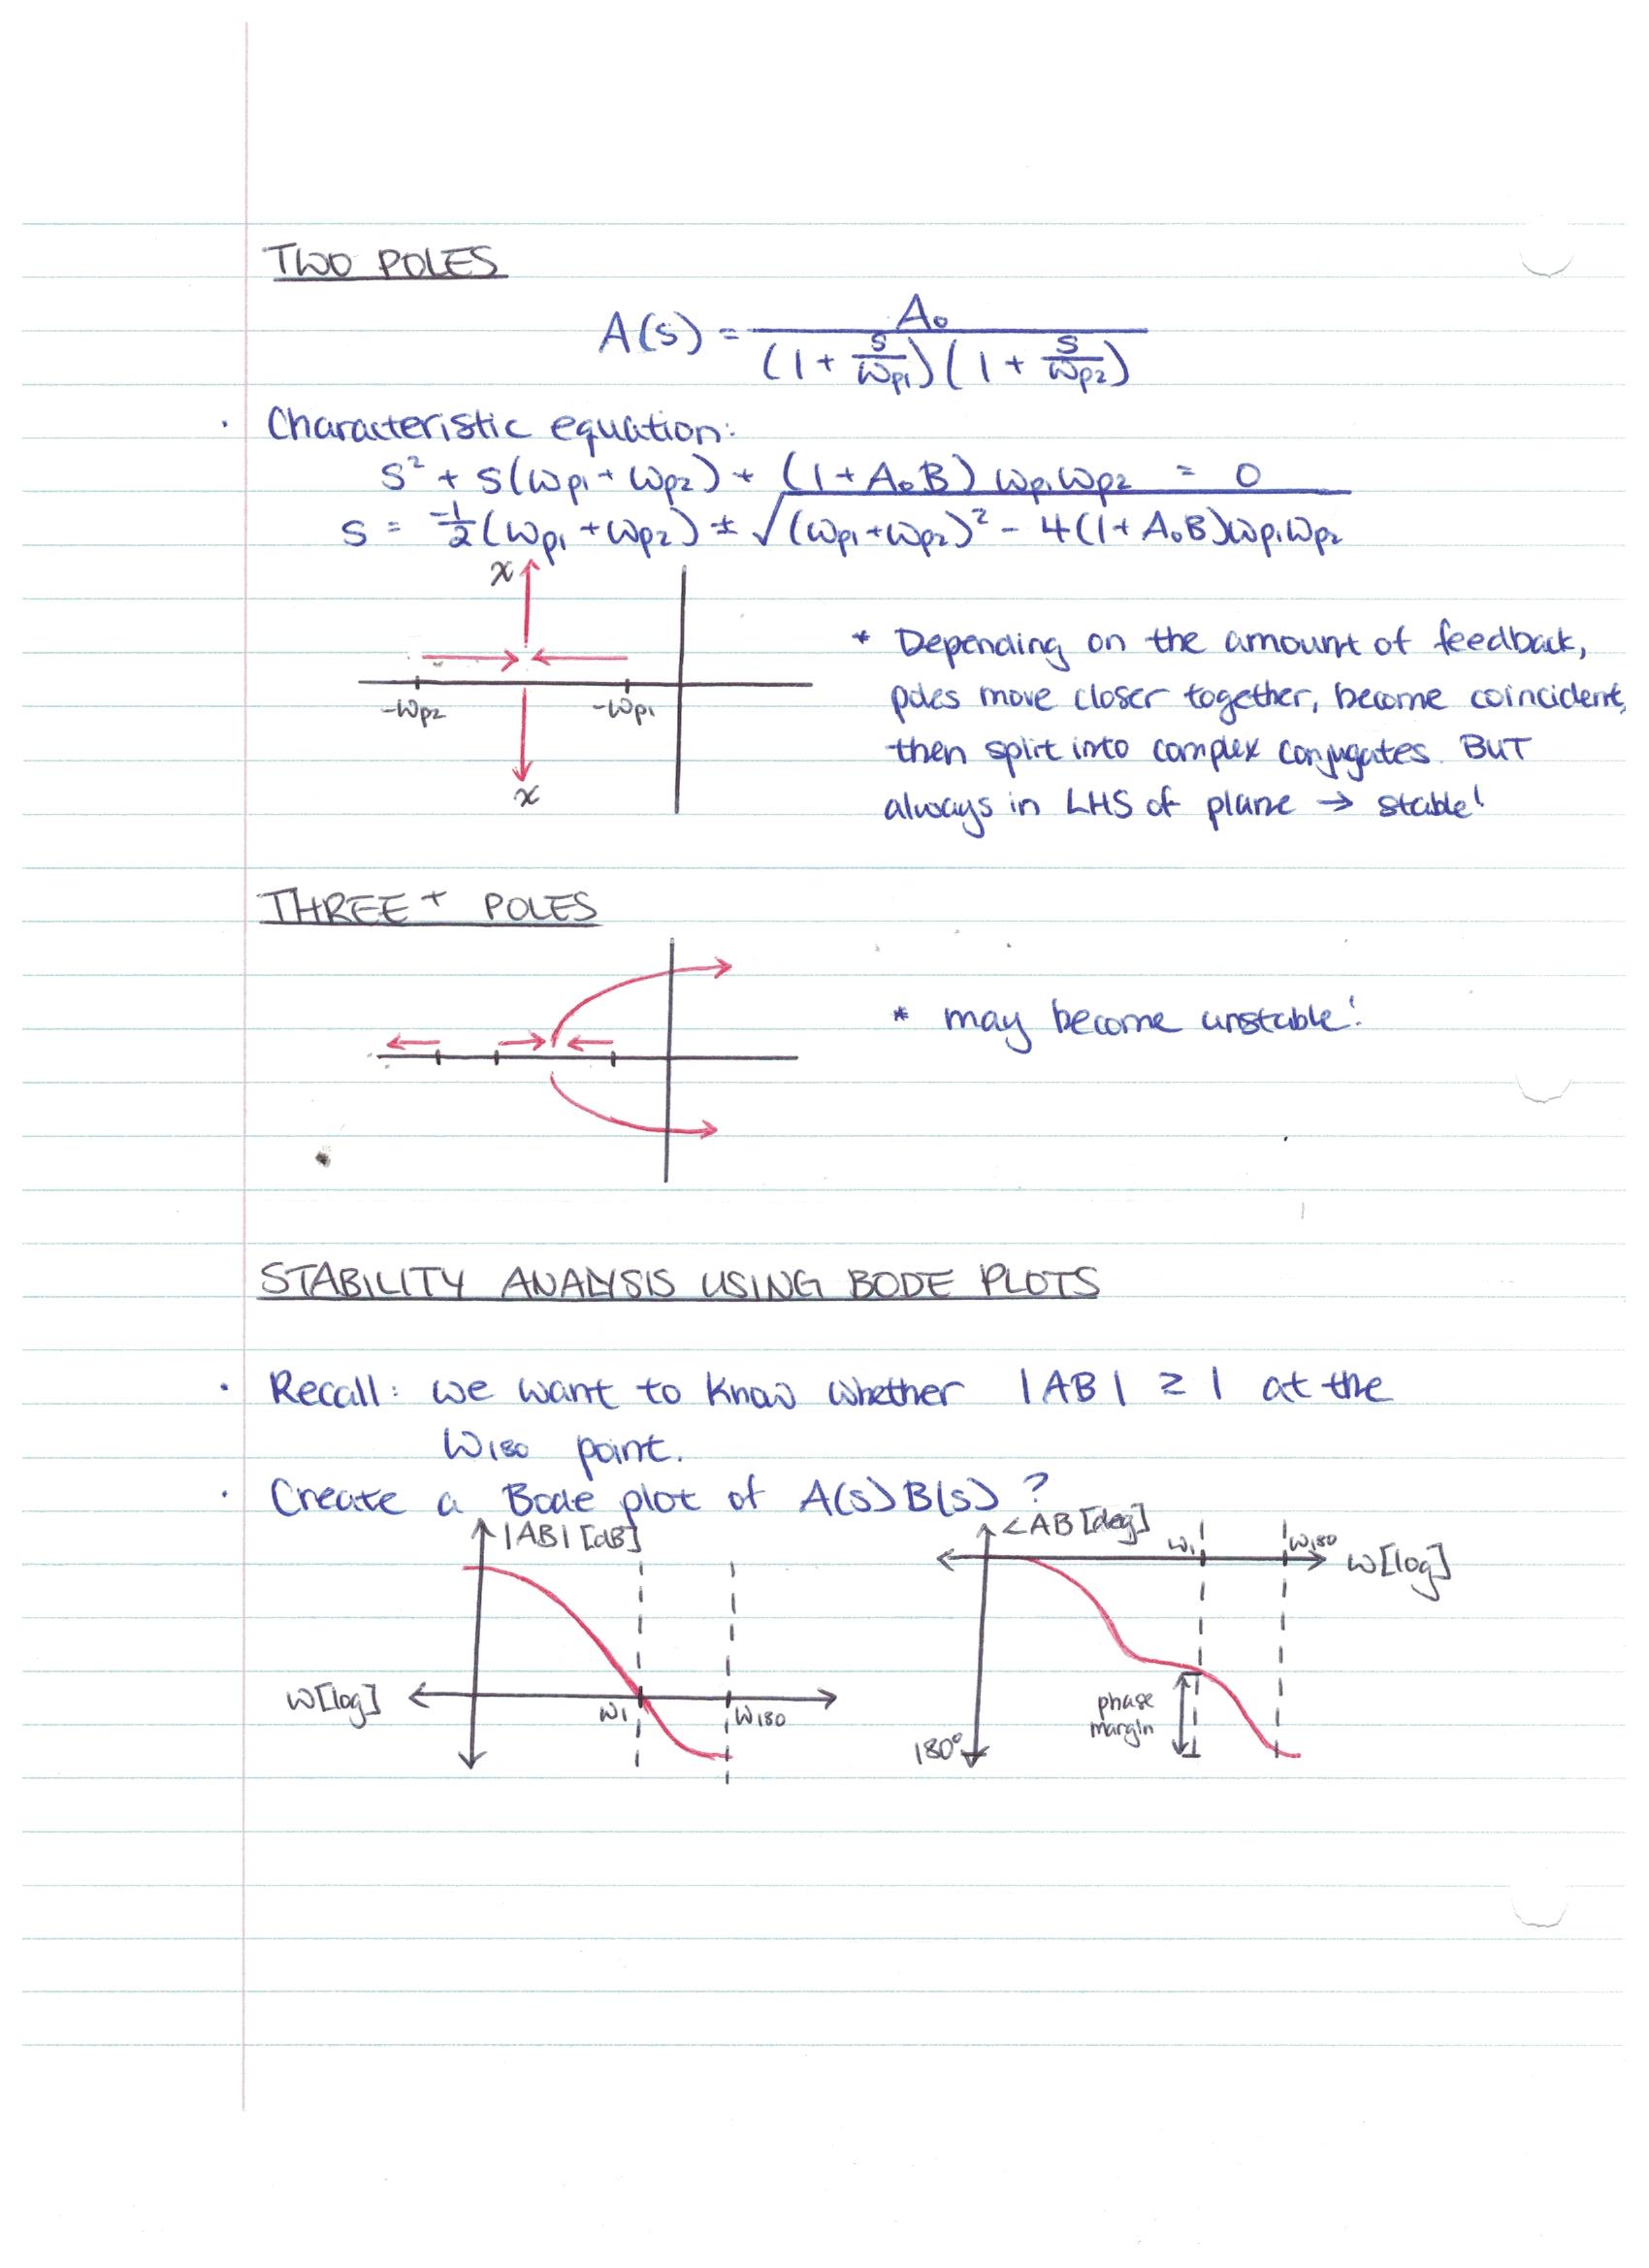 TWO POLES
A(s) = A₀ / (1 + s/ωp1)(1 + s/ωp2)
· Characteristic equation:
s² + s(ωp1 + ωp2) + (1 + A₀B) ωp1ωp2 = 0
s = -1/2 (ωp1 + ωp2) ± √(ωp1 + ωp2)² - 4(1 + A₀B)ωp1ωp2
x
-ωp2 -ωp1
x
* Depending on the amount of feedback,
poles move closer together, become coincident,
then split into complex conjugates. BUT
always in LHS of plane → stable!
THREE+ POLES
* may become unstable!
STABILITY ANALYSIS USING BODE PLOTS
· Recall: we want to know whether |AB| ≥ 1 at the
ω180 point.
· Create a Bode plot of A(s)B(s)?
|AB| [dB]
ω[log]
ω1 ω180
∠AB [deg]
ω1 ω180
ω[log]
phase
margin
180°